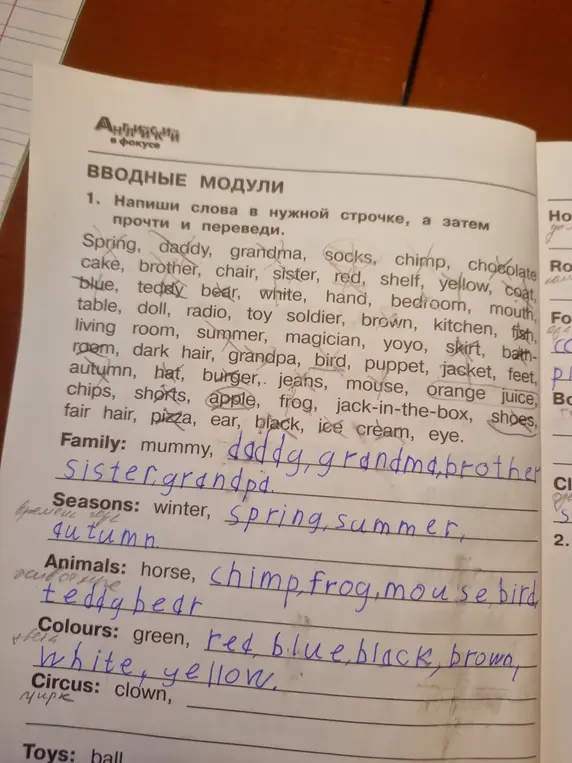 Английский
в фокусе
ВВОДНЫЕ МОДУЛИ
1. Напиши слова в нужной строчке, а затем
прочти и переведи.
Spring, daddy, grandma, socks, chimp, chocolate
cake, brother, chair, sister, red, shelf, yellow, coat,
blue, teddy bear, white, hand, bedroom, mouth,
table, doll, radio, toy soldier, brown, kitchen, fish,
living room, summer, magician, yoyo, skirt, bath-
room, dark hair, grandpa, bird, puppet, jacket, feet,
autumn, hat, burger, jeans, mouse, orange juice,
chips, shorts, apple, frog, jack-in-the-box, shoes,
fair hair, pizza, ear, black, ice cream, eye.
Family: mummy, daddy, grandma, brother
sister, grandpa.
Seasons: winter, spring, summer,
времена года
autumn.
Animals: horse, chimp, frog, mouse, bird,
животные
teddy bear
Colours: green, red, blue, black, brown,
цвета
white, yellow.
Circus: clown,
цирк
Toys: ball
Ho
Ro
Fo
Bo
Cl
2.